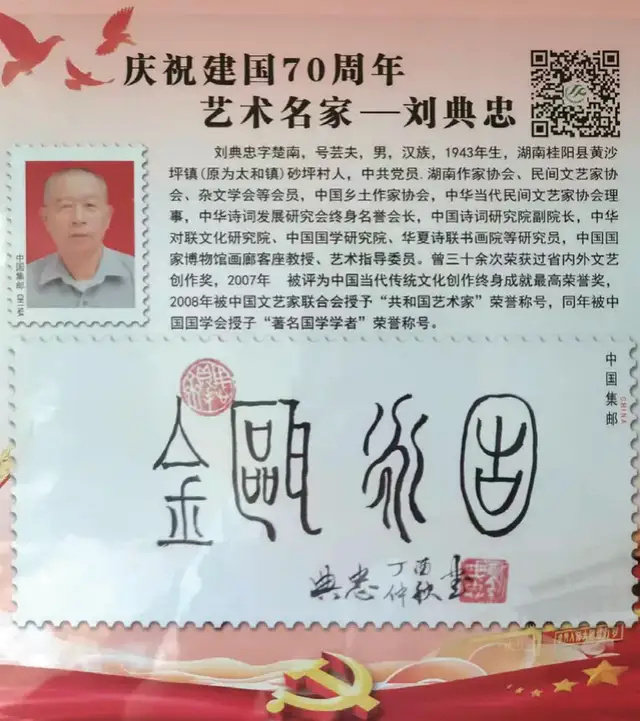 庆祝建国70周年
艺术名家—刘典忠
刘典忠字楚南，号芸夫，男，汉族，1943年生，湖南桂阳县黄沙
坪镇(原为太和镇)砂坪村人，中共党员.湖南作家协会、民间文艺家协
会、杂文学会等会员，中国乡土作家协会，中华当代民间文艺家协会理
事，中华诗词发展研究会终身名誉会长，中国诗词研究院副院长，中华
对联文化研究院、中国国学研究院、华夏诗联书画院等研究员，中国国
家博物馆画廊客座教授、艺术指导委员。曾三十余次荣获过省内外文艺
创作奖，2007年 被评为中国当代传统文化创作终身成就最高荣誉奖，
2008年被中国文艺家联合会授予“共和国艺术家”荣誉称号，同年被中
国国学会授子“著名国学学者”荣誉称号。
中国集邮
中国集邮
CHINA
金甌永固
丁酉
仲秋
典忠书